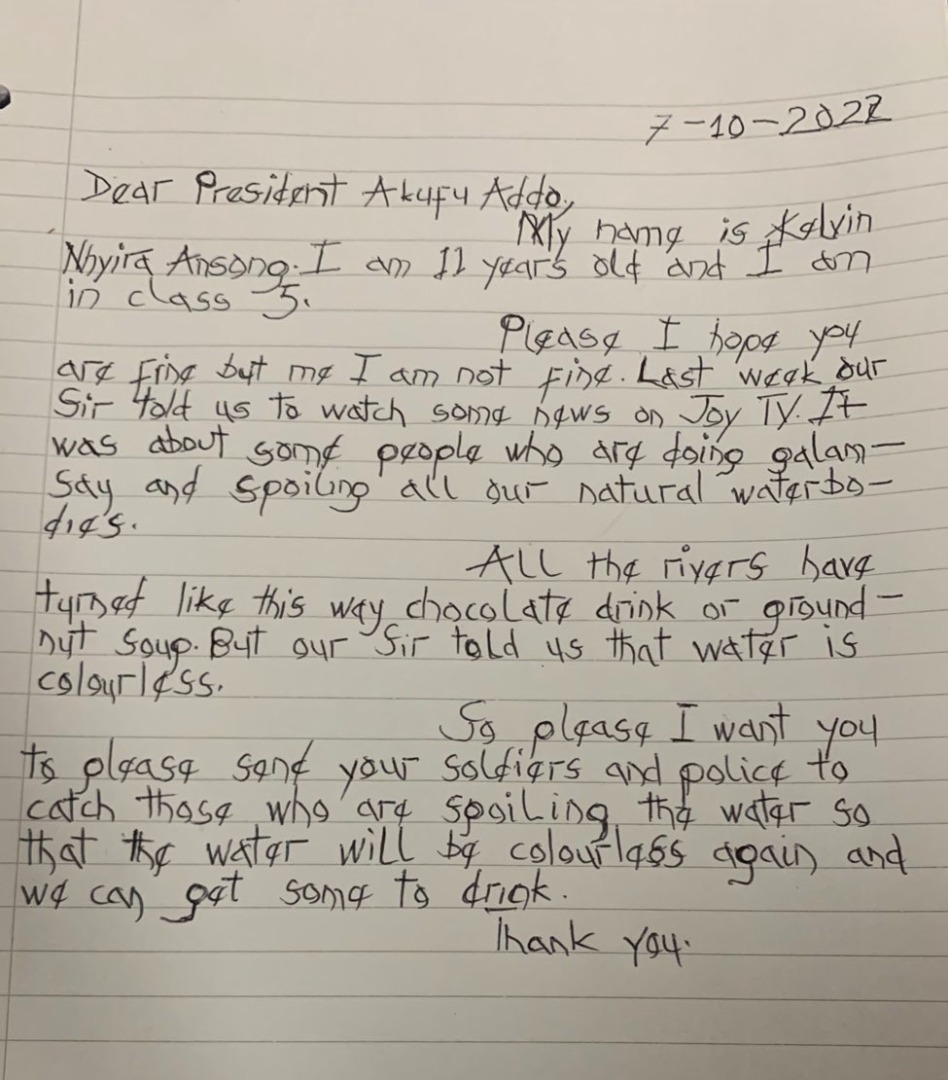 7-10-2022
Dear President Akufu Addo,
My name is Kelvin
Nhyira Ansong. I am 11 years old and I am
in class 5.
Please I hope you
are fine but me I am not fine. Last week our
Sir told us to watch some news on Joy TV. It
was about some people who are doing galam-
say and spoiling all our natural waterbo-
dies.
All the rivers have
turned like this way chocolate drink or ground-
nut soup. But our Sir told us that water is
colourless.
So please I want you
to please send your soldiers and police to
catch those who are spoiling the water so
that the water will be colourless again and
we can get some to drink.
Thank you.